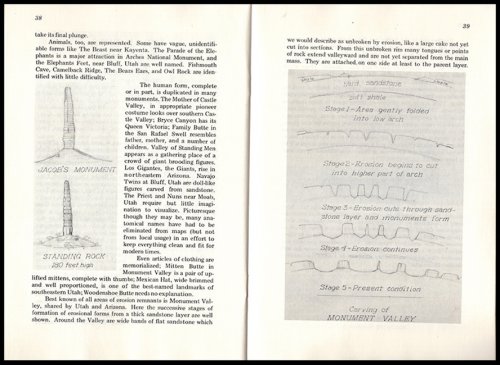 38
take its final plunge.
Animals, too, are represented. Some have vague, unidentifi-
able forms like The Beast near Kayenta. The Parade of the Ele-
phants is a major attraction in Arches National Monument, and
the Elephants Feet, near Bluff, Utah are well named. Fishmouth
Cave, Camelback Ridge, The Bears Ears, and Owl Rock are iden-
tified with little difficulty.
The human form, complete
or in part, is duplicated in many
monuments. The Mother of Castle
Valley, in appropriate pioneer
costume looks over southern Cas-
tle Valley; Bryce Canyon has its
Queen Victoria; Family Butte in
the San Rafael Swell resembles
father, mother, and a number of
children. Valley of Standing Men
appears as a gathering place of a
crowd of giant brooding figures.
Los Gigantes, the Giants, rise in
northeastern Arizona. Navajo
Twins at Bluff, Utah are doll-like
figures carved from sandstone.
The Priest and Nuns near Moab,
Utah require but little imagi-
nation to visualize. Picturesque
though they may be, many ana-
tomical names have had to be
eliminated from maps (but not
from local usage) in an effort to
keep everything clean and fit for
modern times.
Even articles of clothing are
memorialized; Mitten Butte in
Monument Valley is a pair of up-
lifted mittens, complete with thumbs; Mexican Hat, wide brimmed
and well proportioned, is one of the best-named landmarks of
southeastern Utah; Woodenshoe Butte needs no explanation.
Best known of all areas of erosion remnants is Monument Val-
ley, shared by Utah and Arizona. Here the successive stages of
formation of erosional forms from a thick sandstone layer are well
shown. Around the Valley are wide bands of flat sandstone which
JACOB'S MONUMENT
STANDING ROCK
280 feet high
39
we would describe as unbroken by erosion, like a large cake not yet
cut into sections. From this unbroken rim many tongues or points
of rock extend valleyward and are not yet separated from the main
mass. They are attached on one side at least to the parent layer.
hard sandstone
soft shale
Stage 1 - Area gently folded
into low arch
Stage 2 - Erosion begins to cut
into higher part of arch
Stage 3 - Erosion cuts through sand-
stone layer and monuments form
Stage 4 - Erosion continues
Stage 5 - Present condition
Carving of
MONUMENT VALLEY